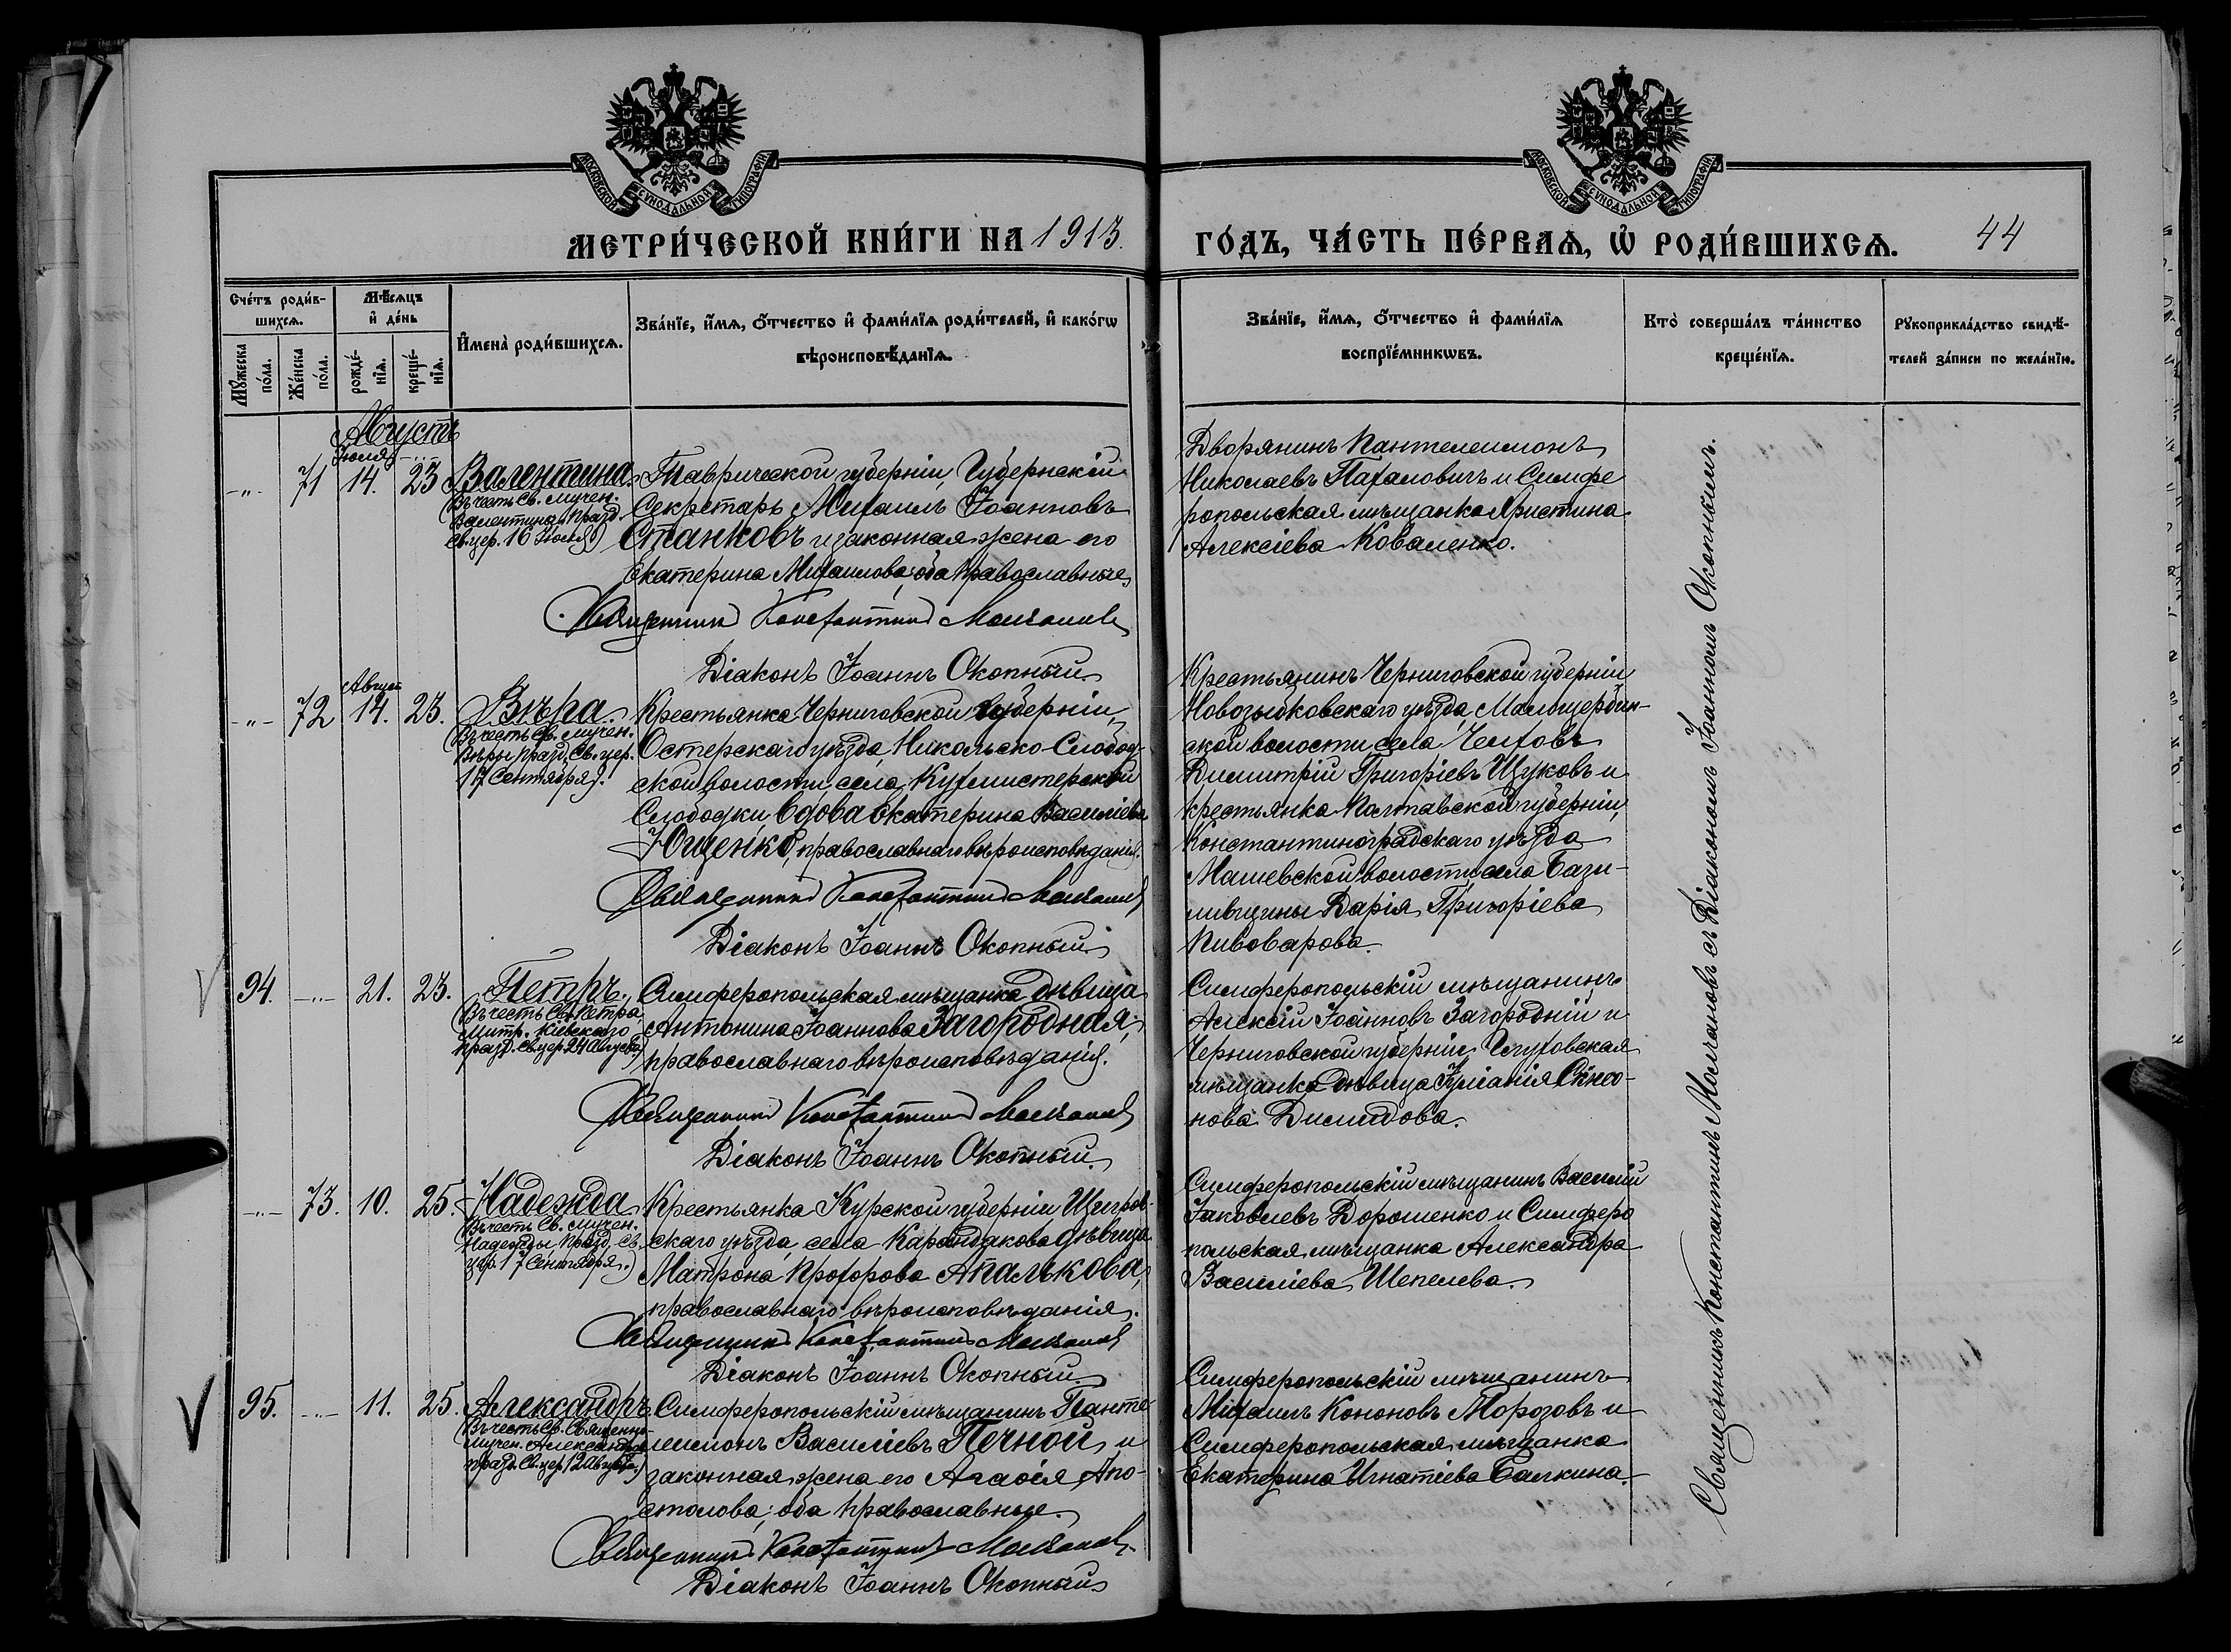 МОСКОВСКОЙ СѴНОДАЛЬНОЙ ТИПОГРАФІИ
МОСКОВСКОЙ СѴНОДАЛЬНОЙ ТИПОГРАФІИ
МЕТРИ́ЧЕСКОЙ КНИ́ГИ НА 1913.
ГО́ДЪ, ЧА́СТЬ ПЕ́РВАѦ, Ѡ҆ РОДИ́ВШИХСѦ.
44
Сче́тъ роди́в-
шихсѧ.
Мꙋ́жеска по́ла.
Же́нска по́ла.
Мѣ́сѧцъ
и҆ де́нь
рожде́-нїѧ.
креще́-нїѧ.
И҆мена̀ роди́вшихсѧ.
Зва́нїе, и҆́мѧ, ѻ҆́тчество и҆ фами́лїѧ роди́телей, и҆ како́гѡ
вѣроисповѣ́данїѧ.
Зва́нїе, и҆́мѧ, ѻ҆́тчество и҆ фами́лїѧ
воспрїе́мникѡвъ.
Кто̀ соверша́лъ та́инство
креще́нїѧ.
Рꙋкоприкла́дство свидѣ́-
телей за́писи по жела́нїю.
Августъ
Іюля
-"- 71 14. 23 Валентина
Въ честь Св. мучен.
Валентины, празд.
Св. цер. 16 Іюля)
Таврической губерніи, Губернскій
Секретарь Михаилъ Іоанновъ
Станковъ и законная жена его
Екатерина Михаилова; оба православные.
Священникъ Константинъ Молчановъ
Діаконъ Іоаннъ Окопный
Дворянинъ Пантелеимонъ
Николаевъ Пахаловичъ и Симфе
ропольская мѣщанка Христина
Алексіева Коваленко.
Август
-"- 72 14. 23. Вѣра.
Въ честь Св. мучен.
Вѣры празд. Св. цер.
17 Сентября).
Крестьянка Черниговской губерніи,
Остерскаго уѣзда, Никольско-Слобод-
ской волости, села Кухмистерской
Слободки, вдова Екатерина Василіева
Ющенко, православнаго вѣроисповѣданія.
Священникъ Константинъ Молчановъ
Діаконъ Іоаннъ Окопный
Крестьянинъ Черниговской губерніи
Новозыбковскаго уѣзда,
ской волости села Челховъ
Димитрій Григоріевъ Щуковъ и
крестьянка Полтавской губерніи,
Константиноградскаго уѣзда
Машевской волости села Бази-
ливщины Дарія Григоріева
Пивоварова.
94. -"- 21. 23. Петръ.
Въ честь Св. Петра
Митр. Кіевскаго
празд. Св. цер. 24 Августа)
Симферопольская мѣщанка дѣвица
Антонина Іоаннова Загородная,
православнаго вѣроисповѣданія.
Священникъ Константинъ Молчановъ
Діаконъ Іоаннъ Окопный.
Симферопольскій мѣщанинъ
Алексій Іоанновъ Загородній и
Черниговской губерніи Глуховская
мѣщанка дѣвица Іуліанія Симео-
нова Димидова.
-"- 73. 10. 25. Надежда
Въ честь Св. мучен.
Надежды празд. Св.
цер. 17 Сентября.)
Крестьянка Курской губерніи Щигров-
скаго уѣзда, села Карандакова дѣвица
Матрона Прохорова Апалькова,
православнаго вѣроисповѣданія.
Священникъ Константинъ Молчановъ
Діаконъ Іоаннъ Окопный
Симферопольскій мѣщанинъ Василій
Іаковлевъ Дорошенко и Симферо
польская мѣщанка Александра
Василіева Шепелева.
95. -"- 11. 25. Александръ
Въ честь Св. Священно-
мучен. Александра
празд. Св. цер. 12 Августа)
Симферопольскій мѣщанинъ Панте-
леимонъ Василіевъ Печной и
законная жена его Агаѳія Апо-
столова; оба православные.
Священникъ Константинъ Молчановъ
Діаконъ Іоаннъ Окопный
Симферопольскій мѣщанинъ
Михаилъ Кононовъ Морозовъ и
Симферопольская мѣщанка
Екатерина Игнатіева Балкина.
Священникъ Константинъ Молчановъ съ Діакономъ Іоанномъ Окопнымъ.